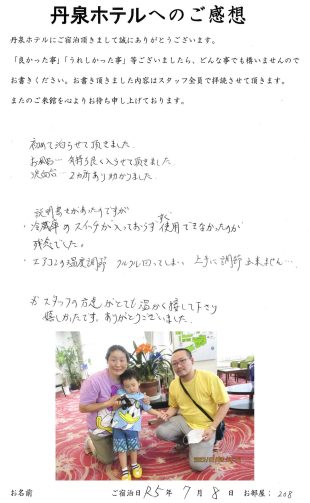 丹泉ホテルへのご感想
丹泉ホテルにご宿泊頂きまして誠にありがとうございます。
「良かった事」「うれしかった事」等ございましたら、どんな事でも構いませんので
お書きください。お書き頂きました内容はスタッフ全員で拝読させて頂きます。
またのご来館を心よりお待ち申し上げております。
初めて泊らせて頂きました
お風呂… 気持ち良く入らせて頂きました
洗面台… 2カ所あり助かりました
説明書きがあったのですが
・冷蔵庫のスイッチが入っておらず すぐ使用できなかったのが
残念でした。
・エアコンの温度調節 クルクル回ってしまい、上手に調節出来ません…
スタッフの方達がとても温かく接して下さり
嬉しかったです。ありがとうございました。
お名前 ご宿泊日 R5年 7月 8日 お部屋： 208